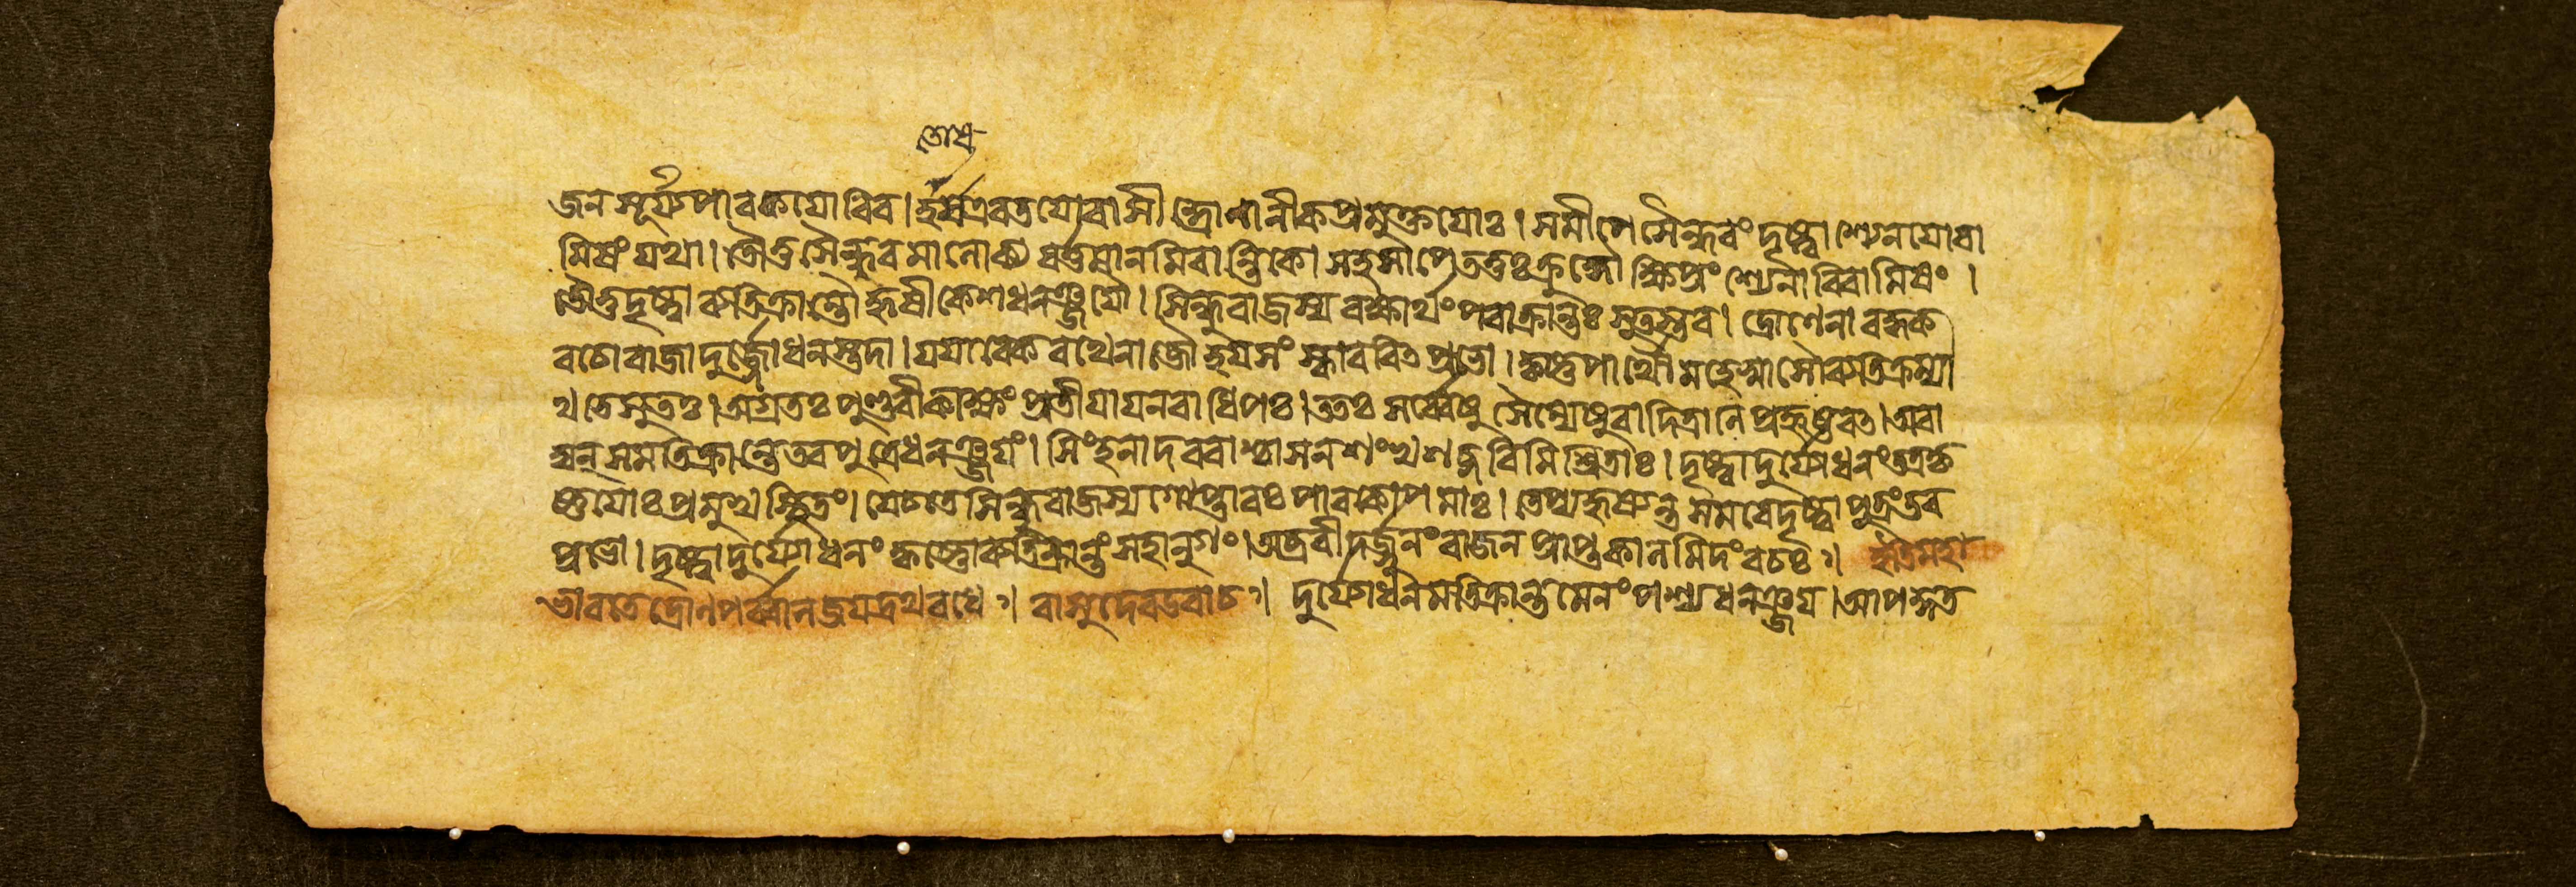 তেষ
জন সূর্য্যপাবকযোরিব। হর্ষএবতযোরাসীদ্দ্রোণানীকপ্রমুক্তযোঃ। সমীপে সৈন্ধবং দৃষ্ট্বা শ্যেনযোরা
মিষং যথা। তৌতু সৈন্ধবমালোক্য বর্ত্তমানমিবান্তিকে। সহসা পেততুঃ ক্রুদ্ধৌ ক্ষিপ্রং শ্যেনাবিবামিষং।
তৌতু দৃষ্ট্বা ব্যতিক্রান্তৌ হৃষীকেশধনঞ্জযৌ। সিন্ধুরাজস্য রক্ষার্থং পরাক্রান্তঃ সুতস্তব। দ্রোণেনাবদ্ধক
বচো রাজা দুর্জ্জোধনস্তদা। যযাবেকরথেনাজৌ হযসংস্কারবিত প্রভো। কৃষ্ণপার্থৌ মহেষ্বাসৌ ব্যতিক্রম্যা
থ তে সুতঃ। অগ্রতঃ পুণ্ডরীকাক্ষং প্রতীযাযনরাধিপঃ। ততঃ সর্ব্বেষু সৈন্যেষু বাদিত্রানি প্রহৃষ্টবত। অবা
দ্যন্ সমতিক্রান্তে তব পুত্রে ধনঞ্জযং। সিংহনাদরবাশ্চাসন শংখশব্দবিমিশ্রিতাঃ। দৃষ্ট্বা দুর্যোধনং তত্রকৃ
ষ্ণযোঃ প্রমুখে স্থিতং। যেচতে সিন্ধুরাজস্য গোপ্তারঃ পাবকোপমাঃ। তেপ্যহৃষ্যন্ত সমরে দৃষ্ট্বা পুত্রং তব
প্রভো। দৃষ্ট্বা দুর্যোধনং কৃষ্ণোব্যতিক্রান্তং সহানুগং। অব্রবীদর্জ্জুনং রাজন প্রাপ্তকালমিদং বচঃ॥ ইতিমহা
ভারতে দ্রোণপর্ব্বনি জযদ্রথবধে॥ বাসুদেবউবাচ॥ দুর্যোধনমতিক্রান্তমেনং পশ্য ধনঞ্জয। আপদ্গত